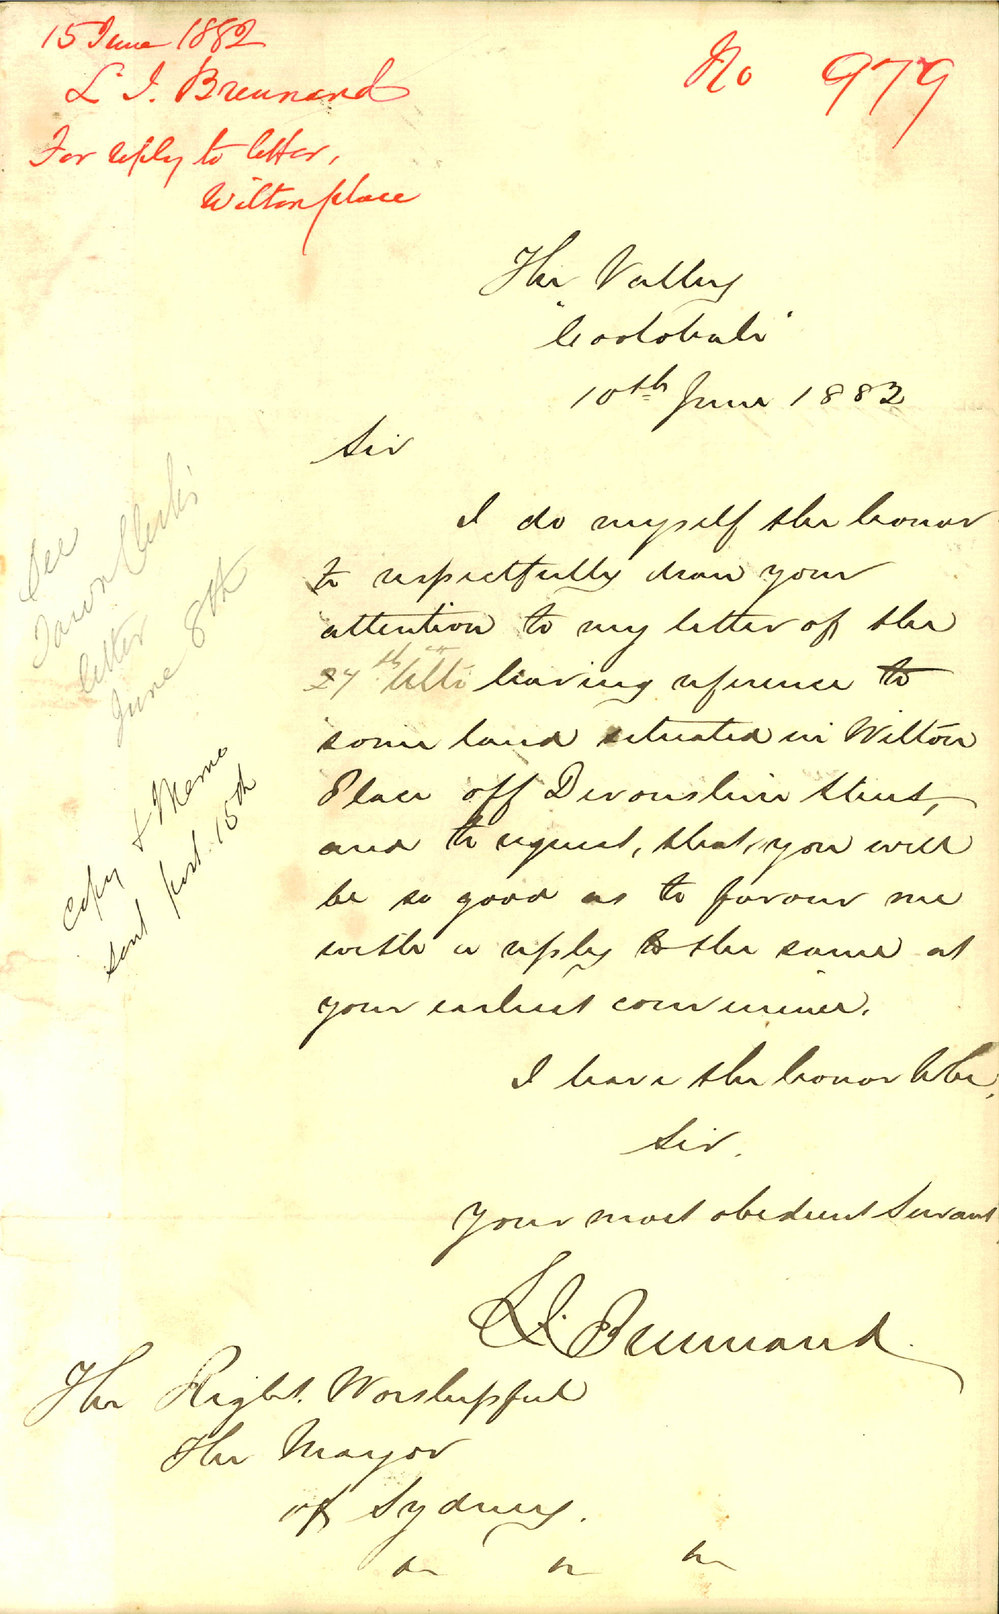 15 June 1882
L I. Brennand
For reply to letter,
Wilton place
No 979
The Valley
10th June 1882
Sir
I do myself the honor
to respectfully draw your
attention to my letter of the
27th Ulto having reference to
some land situated in Wilton
Place off Devonshire Street,
and to request, that, you will
be so good as to favour me
with a reply to the same at
your earliest convenience.
I have the honor to be,
Sir.
Your most obedient Servant
L I. Brennand.
The Right. Worshipful
The Mayor
of Sydney.
See
Town Clerk's
letter
June 8th
Copy & Memo
sent post. 15th